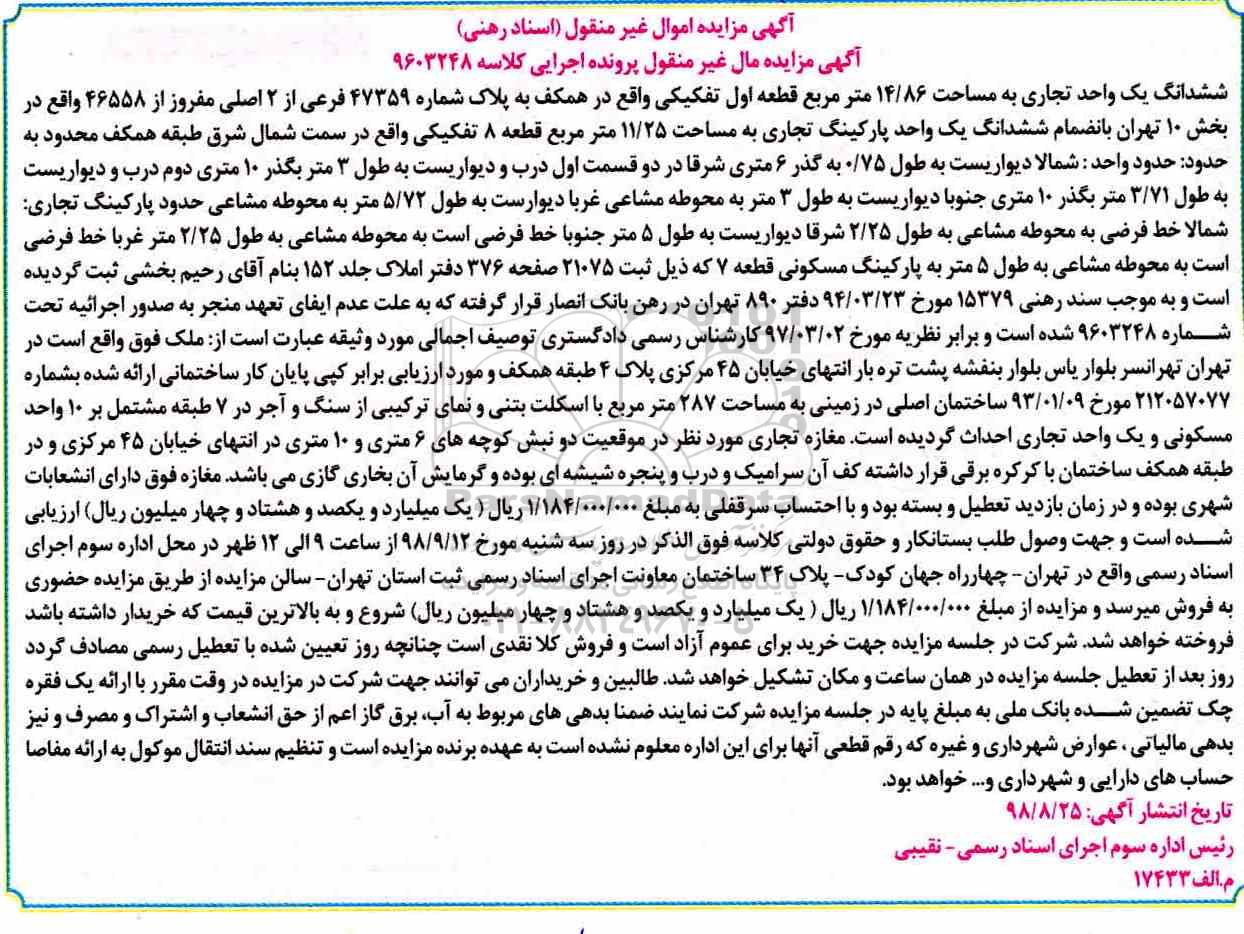 آگهی مزایده اموال غیر منقول (اسناد رهنی)
آگهی مزایده مال غیر منقول پرونده اجرایی کلاسه ۹۶۰۳۲۴۸
ششدانگ یک واحد تجاری به مساحت ۱۴/۸۶ متر مربع قطعه اول تفکیکی واقع در همکف به پلاک شماره ۴۷۳۵۹ فرعی از ۲ اصلی مفروز از ۴۶۵۵۸ واقع در
بخش ۱۰ تهران بانضمام ششدانگ یک واحد پارکینگ تجاری به مساحت ۱۱/۲۵ متر مربع قطعه ۸ تفکیکی واقع در سمت شمال شرق طبقه همکف محدود به
حدود: حدود واحد : شمالا دیواریست به طول ۰/۷۵ به گذر ۶ متری شرقا در دو قسمت اول درب و دیواریست به طول ۳ متر بگذر ۱۰ متری دوم درب و دیواریست
به طول ۳/۷۱ متر بگذر ۱۰ متری جنوبا دیواریست به طول ۳ متر به محوطه مشاعی غربا دیوارست به طول ۵/۷۲ متر به محوطه مشاعی حدود پارکینگ تجاری:
شمالا خط فرضی به محوطه مشاعی به طول ۲/۲۵ شرقا دیواریست به طول ۵ متر جنوبا خط فرضی است به محوطه مشاعی به طول ۲/۲۵ متر غربا خط فرضی
است به محوطه مشاعی به طول ۵ متر به پارکینگ مسکونی قطعه ۷ که ذیل ثبت ۲۱۰۷۵ صفحه ۳۷۶ دفتر املاک جلد ۱۵۲ بنام آقای رحیم بخشی ثبت گردیده
است و به موجب سند رهنی ۱۵۳۷۹ مورخ ۹۴/۰۳/۲۳ دفتر ۸۹۰ تهران در رهن بانک انصار قرار گرفته که به علت عدم ایفای تعهد منجر به صدور اجرائیه تحت
شـــماره ۹۶۰۳۲۴۸ شده است و برابر نظریه مورخ ۹۷/۰۳/۰۲ کارشناس رسمی دادگستری توصیف اجمالی مورد وثیقه عبارت است از: ملک فوق واقع است در
تهران تهرانسر بلوار یاس بلوار بنفشه پشت تره بار انتهای خیابان ۴۵ مرکزی پلاک ۴ طبقه همکف و مورد ارزیابی برابر کپی پایان کار ساختمانی ارائه شده بشماره
۲۱۲۰۵۷۰۷۷ مورخ ۹۳/۰۱/۰۹ ساختمان اصلی در زمینی به مساحت ۲۸۷ متر مربع با اسکلت بتنی و نمای ترکیبی از سنگ و آجر در ۷ طبقه مشتمل بر ۱۰ واحد
مسکونی و یک واحد تجاری احداث گردیده است. مغازه تجاری مورد نظر در موقعیت دو نبش کوچه های ۶ متری و ۱۰ متری در انتهای خیابان ۴۵ مرکزی و در
طبقه همکف ساختمان با کرکره برقی قرار داشته کف آن سرامیک و درب و پنجره شیشه ای بوده و گرمایش آن بخاری گازی می باشد. مغازه فوق دارای انشعابات
شهری بوده و در زمان بازدید تعطیل و بسته بود و با احتساب سرقفلی به مبلغ ۱/۱۸۴/۰۰۰/۰۰۰ ریال ( یک میلیارد و یکصد و هشتاد و چهار میلیون ریال) ارزیابی
شـــده است و جهت وصول طلب بستانکار و حقوق دولتی کلاسه فوق الذکر در روز سه شنبه مورخ ۹۸/۹/۱۲ از ساعت ۹ الی ۱۲ ظهر در محل اداره سوم اجرای
اسناد رسمی واقع در تهران- چهارراه جهان کودک- پلاک ۳۴ ساختمان معاونت اجرای اسناد رسمی ثبت استان تهران- سالن مزایده از طریق مزایده حضوری
به فروش میرسد و مزایده از مبلغ ۱/۱۸۴/۰۰۰/۰۰۰ ریال ( یک میلیارد و یکصد و هشتاد و چهار میلیون ریال) شروع و به بالاترین قیمت که خریدار داشته باشد
فروخته خواهد شد. شرکت در جلسه مزایده جهت خرید برای عموم آزاد است و فروش کلا نقدی است چنانچه روز تعیین شده با تعطیل رسمی مصادف گردد
روز بعد از تعطیل جلسه مزایده در همان ساعت و مکان تشکیل خواهد شد. طالبین و خریداران می توانند جهت شرکت در مزایده در وقت مقرر با ارائه یک فقره
چک تضمین شـــده بانک ملی به مبلغ پایه در جلسه مزایده شرکت نمایند ضمنا بدهی های مربوط به آب، برق گاز اعم از حق انشعاب و اشتراک و مصرف و نیز
بدهی مالیاتی ، عوارض شهرداری و غیره که رقم قطعی آنها برای این اداره معلوم نشده است به عهده برنده مزایده است و تنظیم سند انتقال موکول به ارائه مفاصا
حساب های دارایی و شهرداری و... خواهد بود.
تاریخ انتشار آگهی: ۹۸/۸/۲۵
رئیس اداره سوم اجرای اسناد رسمی- نقیبی
م.الف ۱۷۴۳۳
ParsNamadData